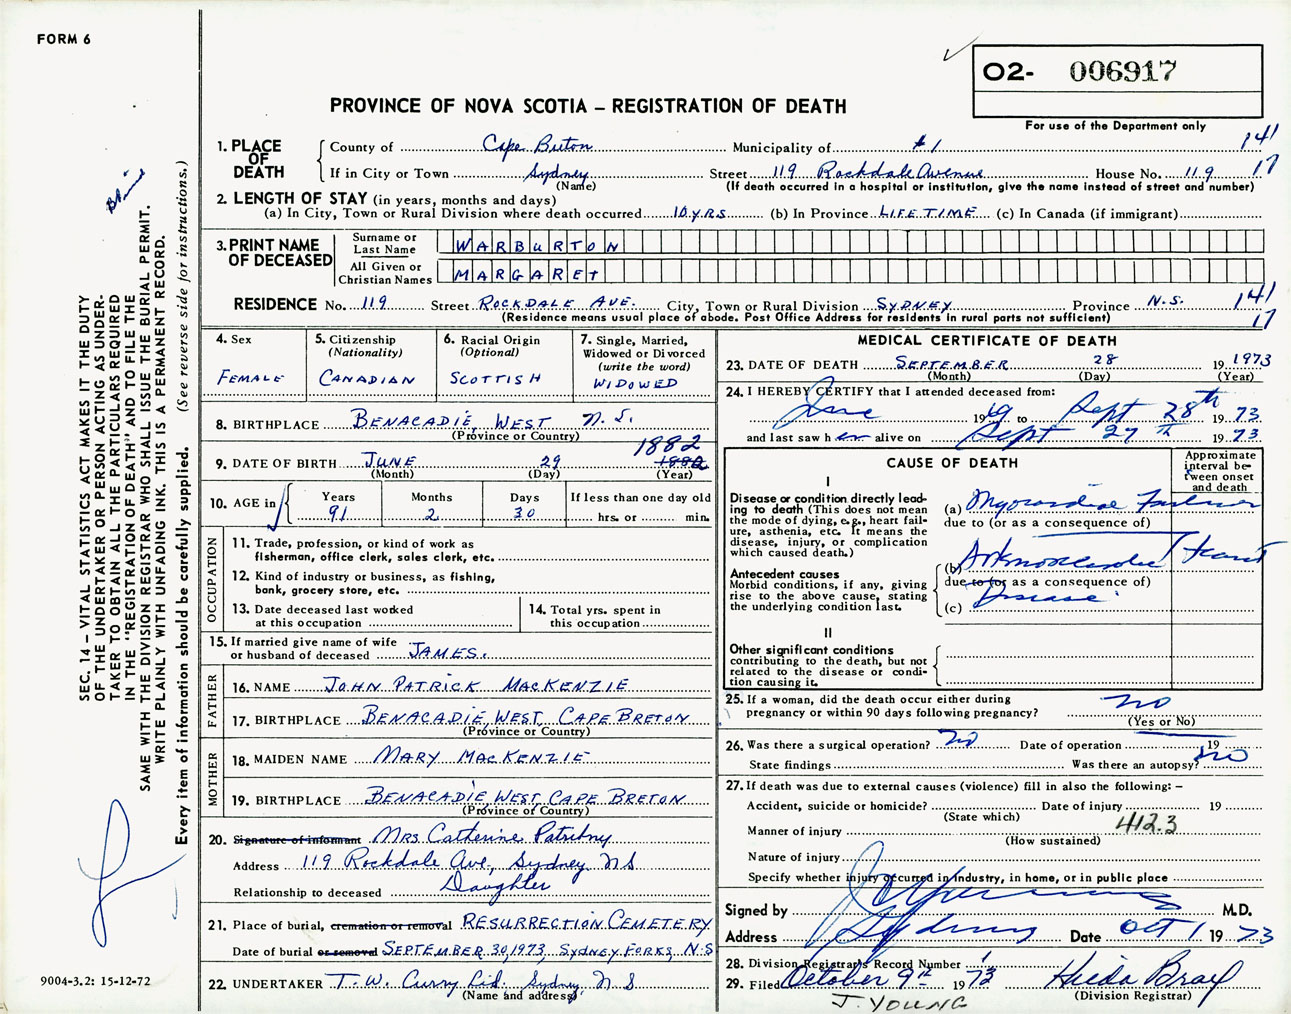 FORM 6
O2- 006917
PROVINCE OF NOVA SCOTIA – REGISTRATION OF DEATH
For use of the Department only
1. PLACE OF DEATH
County of Cape Breton Municipality of #1 141
If in City or Town Sydney Street 119 Rockdale Avenue House No. 119 17
(Name) (If death occurred in a hospital or institution, give the name instead of street and number)
2. LENGTH OF STAY (in years, months and days)
(a) In City, Town or Rural Division where death occurred 10 YRS (b) In Province LIFE TIME (c) In Canada (if immigrant)
3. PRINT NAME OF DECEASED
Surname or Last Name WARBURTON
All Given or Christian Names MARGARET
RESIDENCE No. 119 Street ROCKDALE AVE. City, Town or Rural Division SYDNEY Province N.S. 141
(Residence means usual place of abode. Post Office Address for residents in rural parts not sufficient) 17
4. Sex
FEMALE
5. Citizenship
(Nationality)
CANADIAN
6. Racial Origin
(Optional)
SCOTTISH
7. Single, Married,
Widowed or Divorced
(write the word)
WIDOWED
8. BIRTHPLACE BENACADIE WEST N.S.
(Province or Country)
1882
9. DATE OF BIRTH JUNE 29 1882
(Month) (Day) (Year)
10. AGE in
Years Months Days If less than one day old
91 2 30 hrs. or min.
OCCUPATION
11. Trade, profession, or kind of work as
fisherman, office clerk, sales clerk, etc.
12. Kind of industry or business, as fishing,
bank, grocery store, etc.
13. Date deceased last worked
at this occupation
14. Total yrs. spent in
this occupation
15. If married give name of wife
or husband of deceased JAMES.
FATHER
16. NAME JOHN PATRICK MACKENZIE
17. BIRTHPLACE BENACADIE, WEST, CAPE BRETON
(Province or Country)
MOTHER
18. MAIDEN NAME MARY MACKENZIE
19. BIRTHPLACE BENACADIE, WEST, CAPE BRETON
(Province or Country)
20. Signature of informant Mrs. Catherine
Address 119 Rockdale Ave, Sydney N S
Relationship to deceased Daughter
21. Place of burial, cremation or removal RESURRECTION CEMETERY
Date of burial or removal SEPTEMBER 30, 1973, SYDNEY FORKS, N.S
22. UNDERTAKER T. W. Curry Ltd. Sydney N S
(Name and address)
MEDICAL CERTIFICATE OF DEATH
23. DATE OF DEATH SEPTEMBER 28 19 1973
(Month) (Day) (Year)
24. I HEREBY CERTIFY that I attended deceased from:
June 1969 to Sept 28th 19 73
and last saw her alive on Sept 27th 19 73
CAUSE OF DEATH
Approximate
interval be-
tween onset
and death
I
Disease or condition directly lead-
ing to death (This does not mean
the mode of dying, e.g., heart fail-
ure, asthenia, etc. It means the
disease, injury, or complication
which caused death.)
(a) Myocardial Failure
due to (or as a consequence of)
Antecedent causes
Morbid conditions, if any, giving
rise to the above cause, stating
the underlying condition last.
(b) Heart
due to (or as a consequence of)
(c) Disease
II
Other significant conditions
contributing to the death, but not
related to the disease or condi-
tion causing it.
25. If a woman, did the death occur either during
pregnancy or within 90 days following pregnancy? no
(Yes or No)
26. Was there a surgical operation? no Date of operation 19
State findings Was there an autopsy? no
27. If death was due to external causes (violence) fill in also the following: –
Accident, suicide or homicide? Date of injury 19
(State which)
Manner of injury 412.3
(How sustained)
Nature of injury
Specify whether injury occurred in industry, in home, or in public place
Signed by M.D.
Address Sydney Date Oct 1 19 73
28. Division Registrar's Record Number
29. Filed October 9th 1973 Hilda Bray
(Division Registrar)
J. YOUNG
SEC. 14 – VITAL STATISTICS ACT MAKES IT THE DUTY
OF THE UNDERTAKER OR PERSON ACTING AS UNDER-
TAKER TO OBTAIN ALL THE PARTICULARS REQUIRED
IN THE "REGISTRATION OF DEATH" AND TO FILE THE
SAME WITH THE DIVISION REGISTRAR WHO SHALL ISSUE THE BURIAL PERMIT.
WRITE PLAINLY WITH UNFADING INK. THIS IS A PERMANENT RECORD.
Every item of information should be carefully supplied. (See reverse side for instructions.)
9004-3.2: 15-12-72